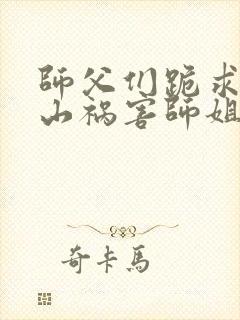 師父们跪求
山祸害師姐
奇卡馬